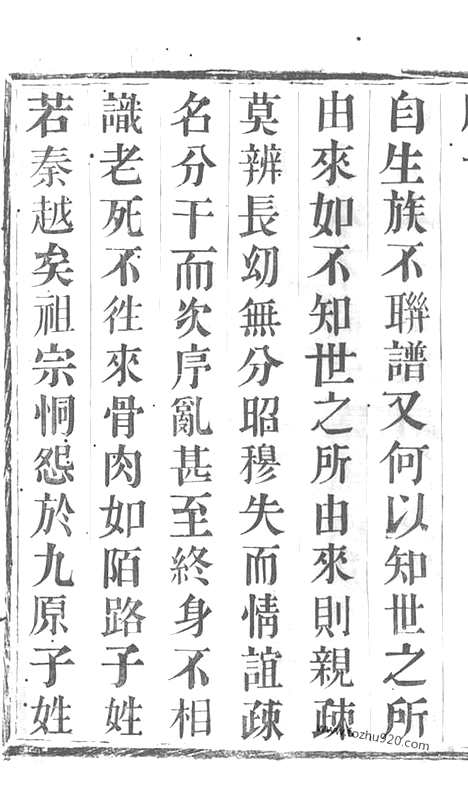 自生族不聯譜又何以知世之所
由來如不知世之所由來則親疎
莫辨長幼無分昭穆失而情誼疎
名分干而次序亂甚至終身不相
識老死不徃來骨肉如陌路子姓
若秦越矣祖宗恫怨於九原子姓
www.fozhu920.com